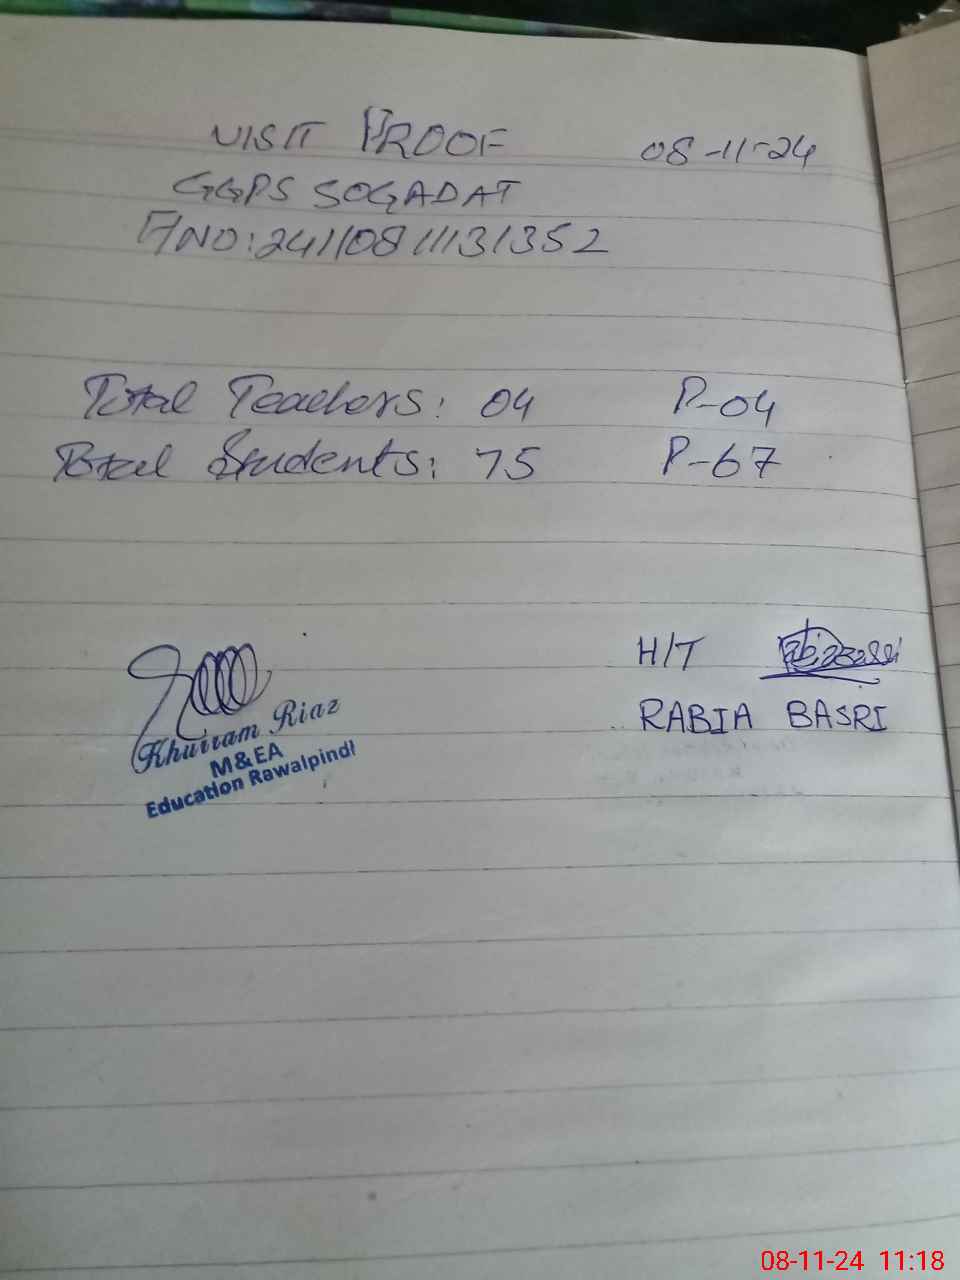 VISIT PROOF 08-11-24
GGPS SOGADAT
F/NO: 24110811131352
Total Teachers: 04 P-04
Total Students: 75 P-67
H/T
RABIA BASRI
Khurram Riaz
M&EA
Education Rawalpindi
08-11-24 11:18